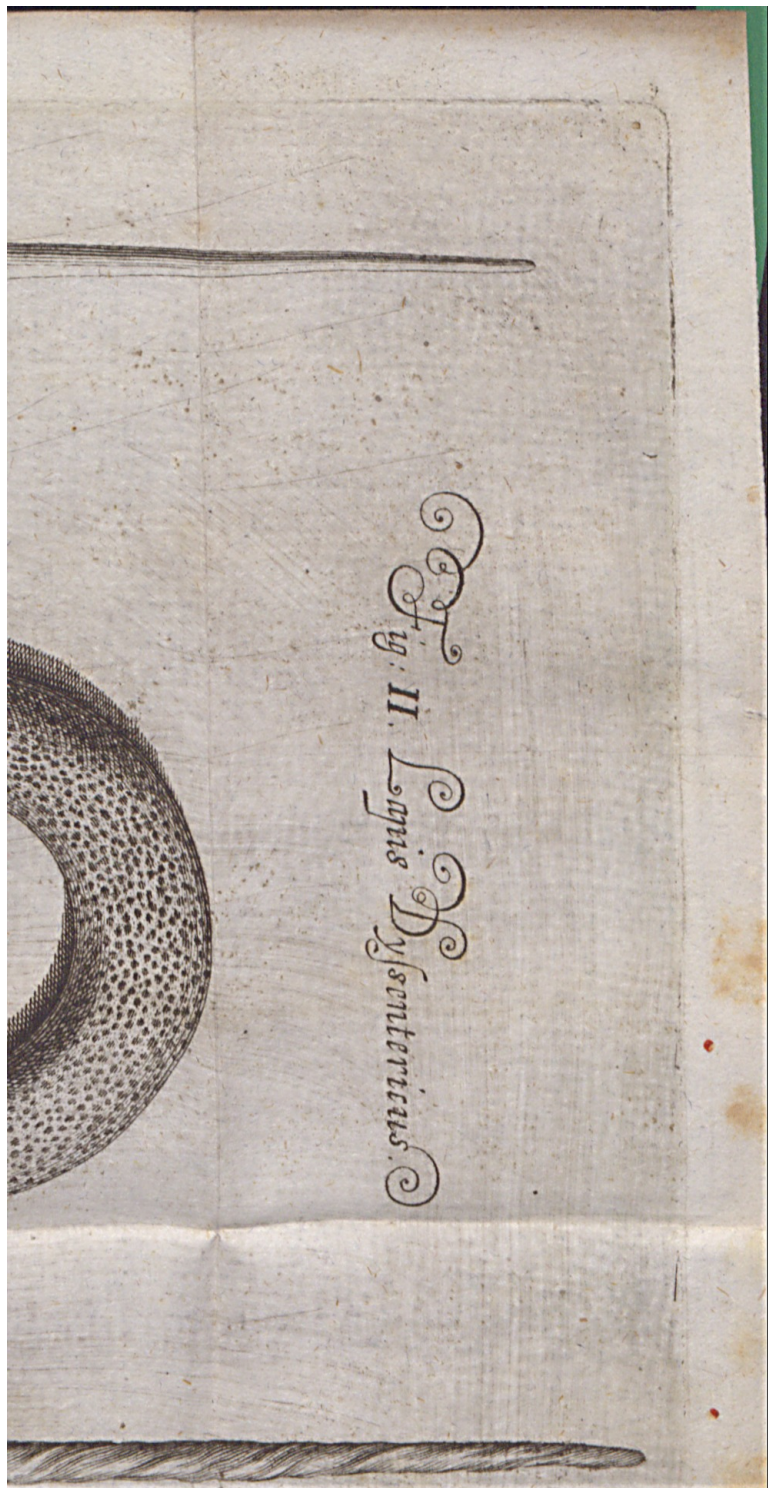 Fig: II. Lapis Dyſentericus.